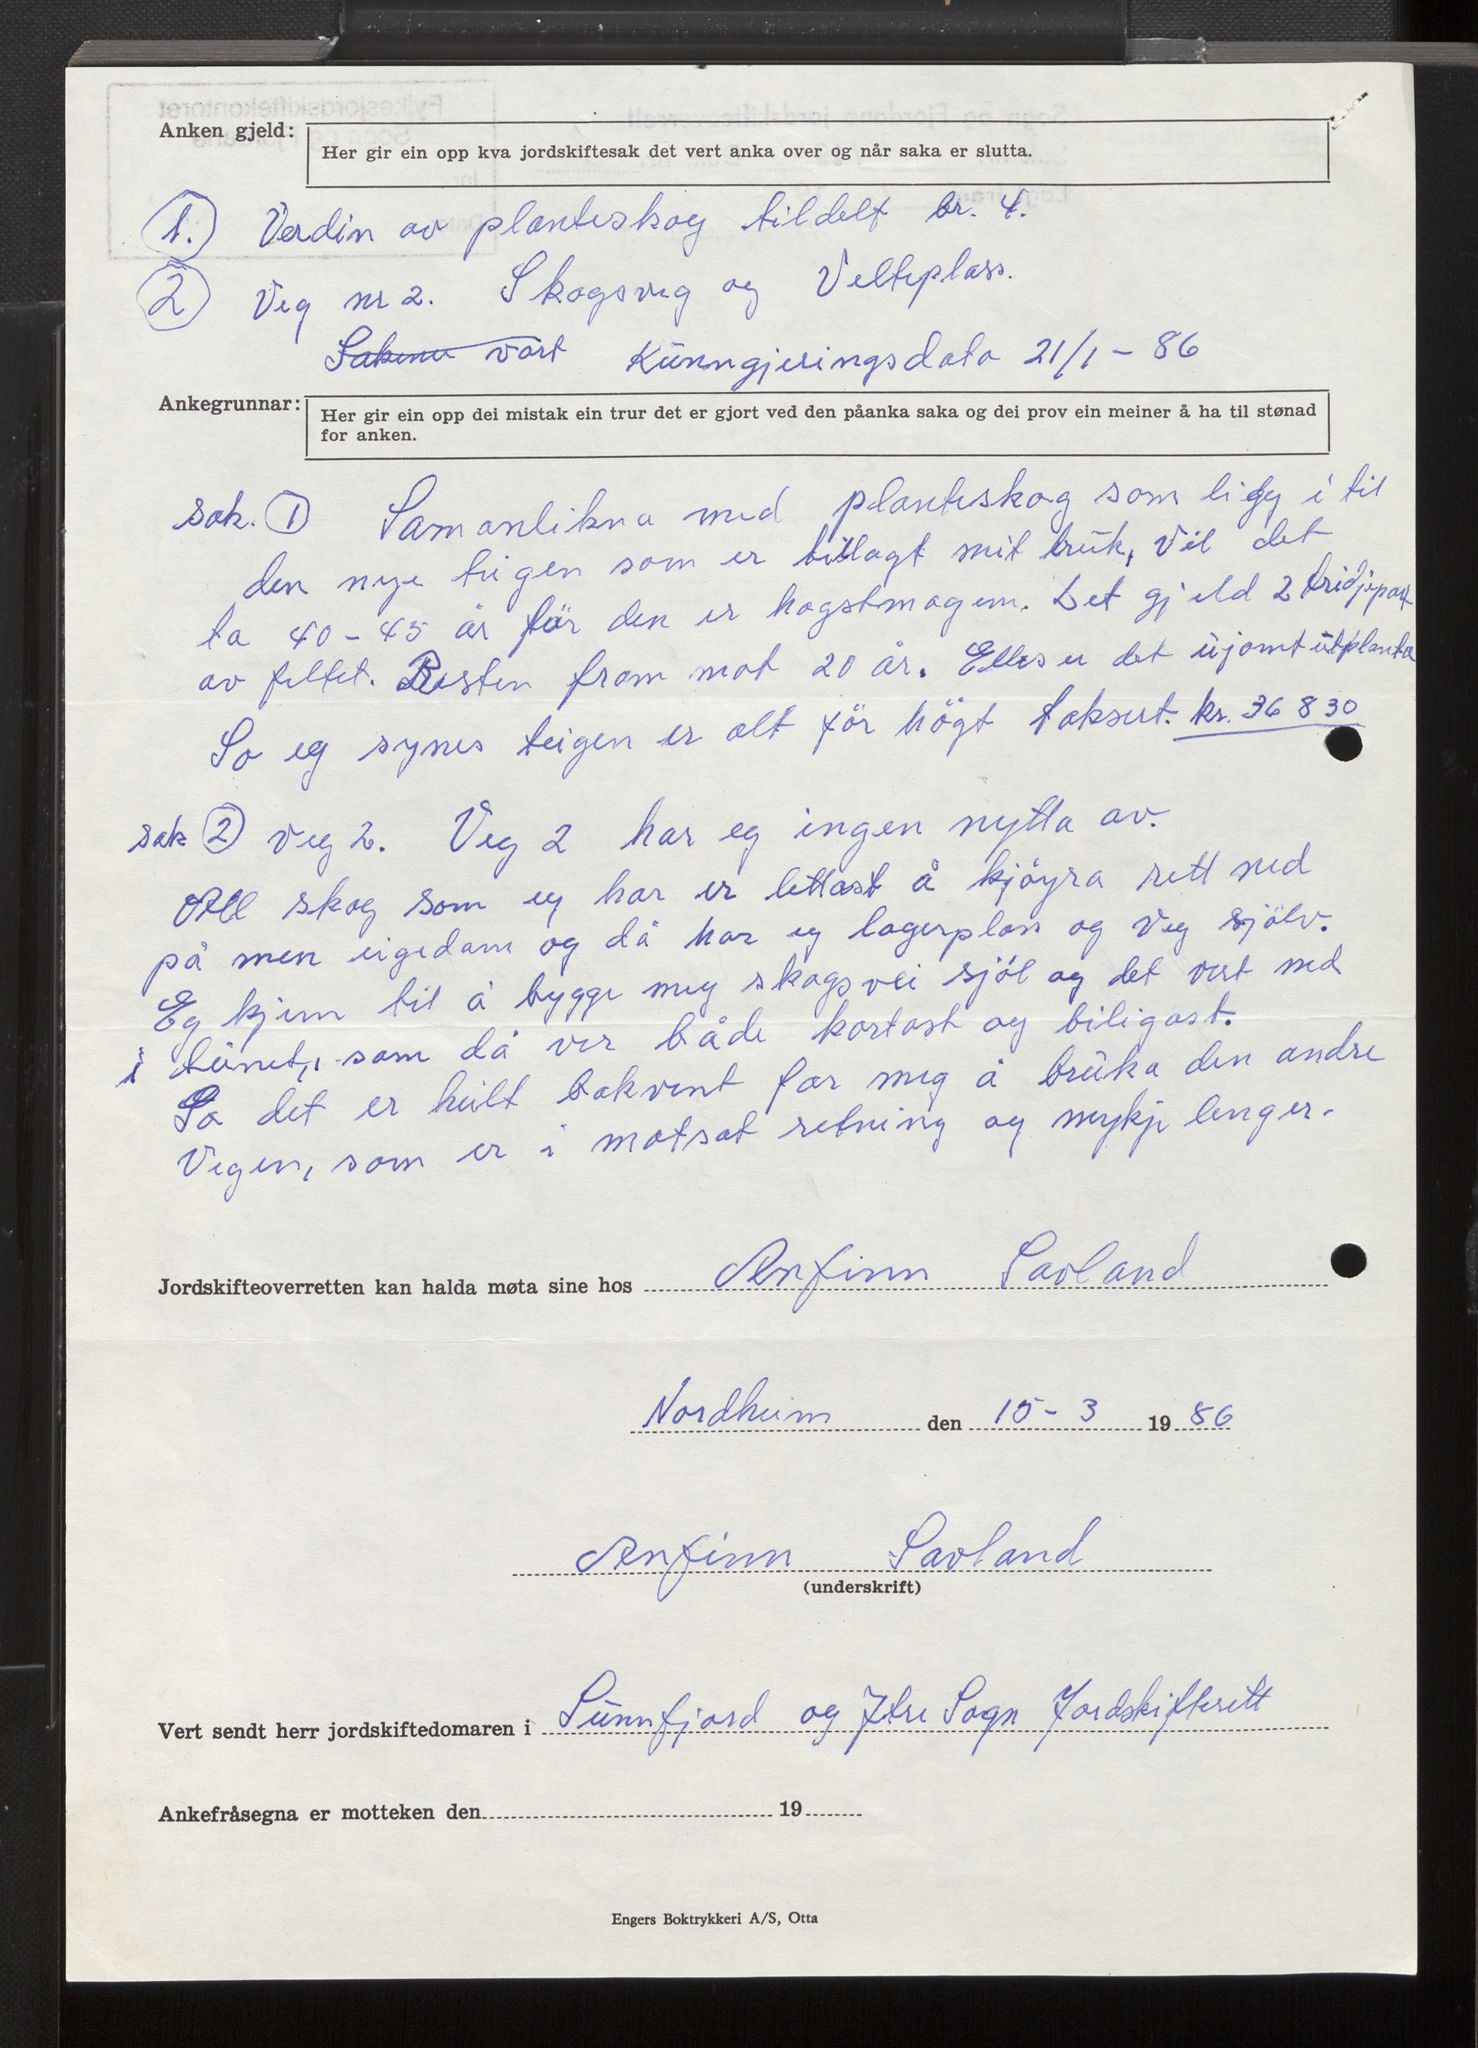 Anken gjeld:
Her gir ein opp kva jordskiftesak det vert anka over og når saka er slutta.
1. Verdin av planteskog tildelt br. 4.
2 Veg nr 2. Skogsveg og Velteplass.
vart Kunngjeringsdato 21/1 - 86
Ankegrunnar:
Her gir ein opp dei mistak ein trur det er gjort ved den påanka saka og dei prov ein meiner å ha til stønad
for anken.
sak. 1 Samanlikna med planteskog som ligg i til
den nye teigen som er tillagt mit bruk, vil det
ta 40 - 45 år før den er hogstmogem. Det gjeld 2 tridjepart
av feltet. Resten fram mot 20 år. Elles er det ujamt utplanta
So eg synes teigen er alt før högt taksert. kr. 36 830
sak 2 Veg 2. Veg 2 har eg ingen nytta av.
All skog som eg har er lettast å kjöyra rett ned
på men eigedom og då har eg lagerplass og veg sjölv.
Eg kjem til å bygge meg skogsvei sjöl og det vert ned
i tunet, som då ver både kortast og biligast.
So det er heilt bakvent for meg å bruka den andre
Vegen, som er i motsat retning og mykje lenger.
Jordskifteoverretten kan halda møta sine hos Anfinn Savland
Nordheim den 15 - 3 19 86
Anfinn Savland
(underskrift)
Vert sendt herr jordskiftedomaren i Sunnfjord og Ytre Sogn Jordskifterett
Ankefråsegna er motteken den 19
Engers Boktrykkeri A/S, Otta